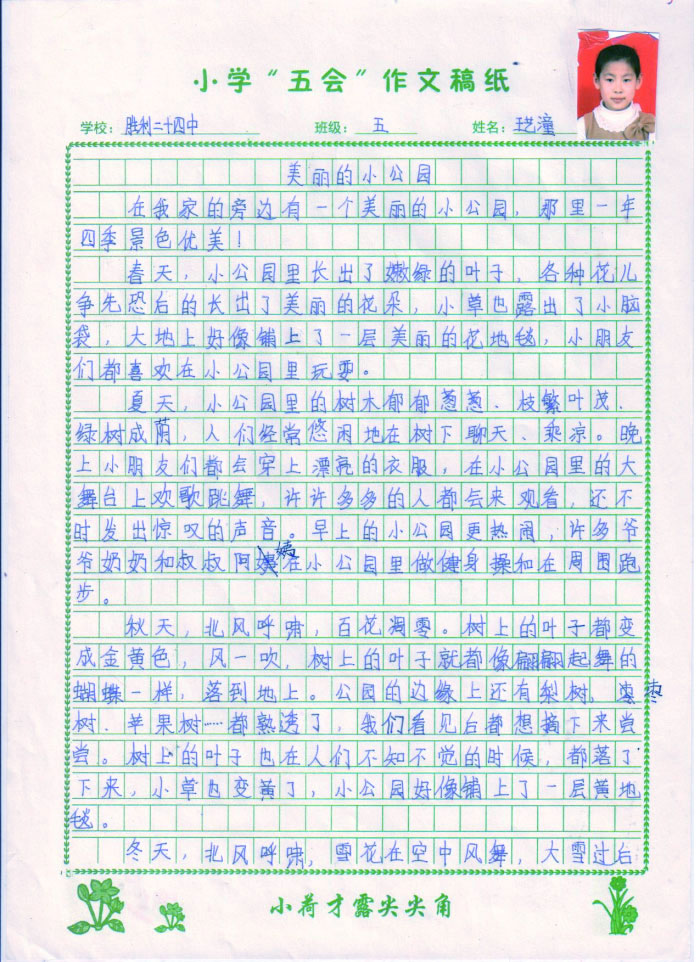 小学“五会”作文稿纸
学校：胜利二十四中 班级：五 姓名：王艺潼
美丽的小公园
在我家的旁边有一个美丽的小公园，那里一年
四季景色优美！
春天，小公园里长出了嫩绿的叶子，各种花儿
争先恐后的长出了美丽的花朵，小草也露出了小脑
袋，大地上好像铺上了一层美丽的花地毯，小朋友
们都喜欢在小公园里玩耍。
夏天，小公园里的树木郁郁葱葱、枝繁叶茂、
绿树成荫，人们经常悠闲地在树下聊天、乘凉。晚
上小朋友们都会穿上漂亮的衣服，在小公园里的大
舞台上欢歌跳舞，许许多多的人都会来观看，还不
时发出惊叹的声音。早上的小公园更热闹，许多爷
爷奶奶和叔叔阿姨在小公园里做健身操和在周围跑
步。
秋天，北风呼啸，百花凋零。树上的叶子都变
成金黄色，风一吹，树上的叶子就都像翩翩起舞的
蝴蝶一样，落到地上。公园的边缘上还有梨树，枣
树、苹果树……都熟透了，我们看见后都想摘下来尝
尝。树上的叶子也在人们不知不觉的时候，都落了
下来，小草也变黄了，小公园好像铺上了一层黄地
毯。
冬天，北风呼啸，雪花在空中风舞，大雪过后
小荷才露尖尖角